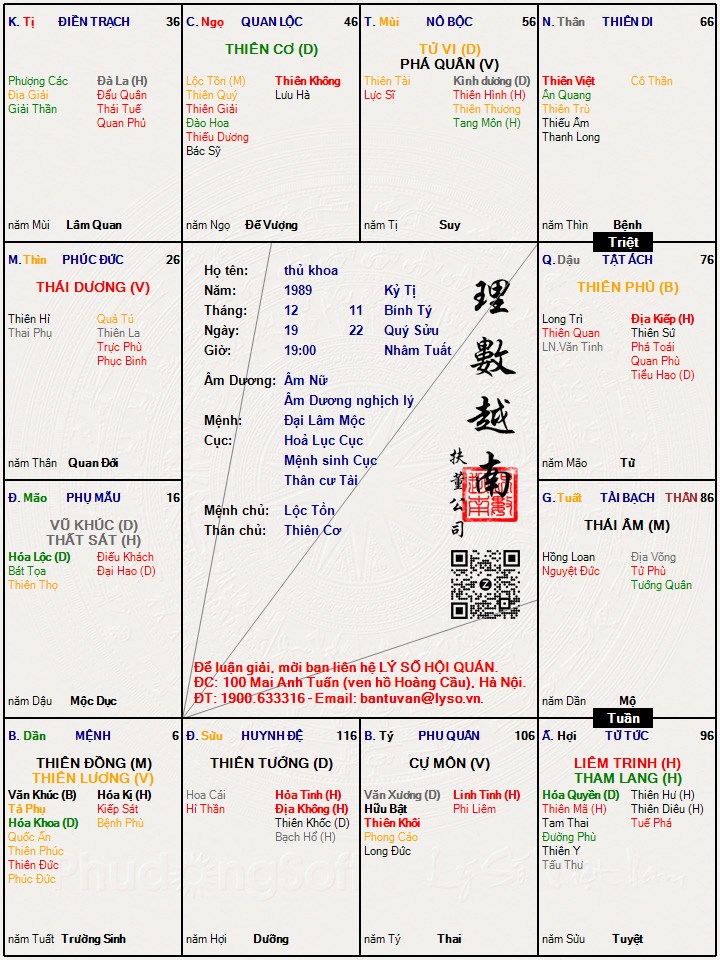 K. Tị ĐIỀN TRẠCH 36
Phượng Các
Địa Giải
Giải Thần
Đà La (H)
Đẩu Quân
Thái Tuế
Quan Phủ
năm Mùi Lâm Quan
C. Ngọ QUAN LỘC 46
THIÊN CƠ (D)
Lộc Tồn (M)
Thiên Quý
Thiên Giải
Đào Hoa
Thiếu Dương
Bác Sỹ
Thiên Không
Lưu Hà
năm Ngọ Đế Vượng
T. Mùi NÔ BỘC 56
TỬ VI (D)
PHÁ QUÂN (V)
Thiên Tài
Lực Sĩ
Kình dương (D)
Thiên Hình (H)
Thiên Thương
Tang Môn (H)
năm Tị Suy
N. Thân THIÊN DI 66
Thiên Việt
Ân Quang
Thiên Trù
Thiếu Âm
Thanh Long
Cô Thần
năm Thìn Bệnh
Triệt
M. Thìn PHÚC ĐỨC 26
THÁI DƯƠNG (V)
Thiên Hỉ
Thai Phụ
Quả Tú
Thiên La
Trực Phù
Phục Binh
năm Thân Quan Đới
Họ tên: thủ khoa
Năm: 1989 Kỷ Tị
Tháng: 12 11 Bính Tý
Ngày: 19 22 Quý Sửu
Giờ: 19:00 Nhâm Tuất
Âm Dương: Âm Nữ
Âm Dương nghịch lý
Mệnh: Đại Lâm Mộc
Cục: Hoả Lục Cục
Mệnh sinh Cục
Thân cư Tài
Mệnh chủ: Lộc Tồn
Thân chủ: Thiên Cơ
理數越南
扶董公司
Để luận giải, mời bạn liên hệ LÝ SỐ HỘI QUÁN.
ĐC: 100 Mai Anh Tuấn (ven hồ Hoàng Cầu), Hà Nội.
ĐT: 1900.633316 - Email: bantuvan@lyso.vn.
Q. Dậu TẬT ÁCH 76
THIÊN PHỦ (B)
Long Trì
Thiên Quan
LN.Văn Tinh
Địa Kiếp (H)
Thiên Sứ
Phá Toái
Quan Phù
Tiểu Hao (D)
năm Mão Tử
Đ. Mão PHỤ MẪU 16
VŨ KHÚC (D)
THẤT SÁT (H)
Hóa Lộc (D)
Bát Tọa
Thiên Thọ
Điếu Khách
Đại Hao (D)
năm Dậu Mộc Dục
G. Tuất TÀI BẠCH THÂN 86
THÁI ÂM (M)
Hồng Loan
Nguyệt Đức
Địa Võng
Tử Phù
Tướng Quân
năm Dần Mộ
Tuần
B. Dần MỆNH 6
THIÊN ĐỒNG (M)
THIÊN LƯƠNG (V)
Văn Khúc (B)
Tả Phụ
Hóa Khoa (D)
Quốc Ấn
Thiên Phúc
Thiên Đức
Phúc Đức
Hóa Kị (H)
Kiếp Sát
Bệnh Phù
năm Tuất Trường Sinh
Đ. Sửu HUYNH ĐỆ 116
THIÊN TƯỚNG (D)
Hoa Cái
Hỉ Thần
Hỏa Tinh (H)
Địa Không (H)
Thiên Khốc (D)
Bạch Hổ (H)
năm Hợi Dưỡng
B. Tý PHU QUÂN 106
CỰ MÔN (V)
Văn Xương (D)
Hữu Bật
Thiên Khôi
Phong Cáo
Long Đức
Linh Tinh (H)
Phi Liêm
năm Tý Thai
Ấ. Hợi TỬ TỨC 96
LIÊM TRINH (H)
THAM LANG (H)
Hóa Quyền (D)
Thiên Mã (H)
Tam Thai
Đường Phù
Thiên Y
Tấu Thư
Thiên Hư (H)
Thiên Diêu (H)
Tuế Phá
năm Sửu Tuyệt